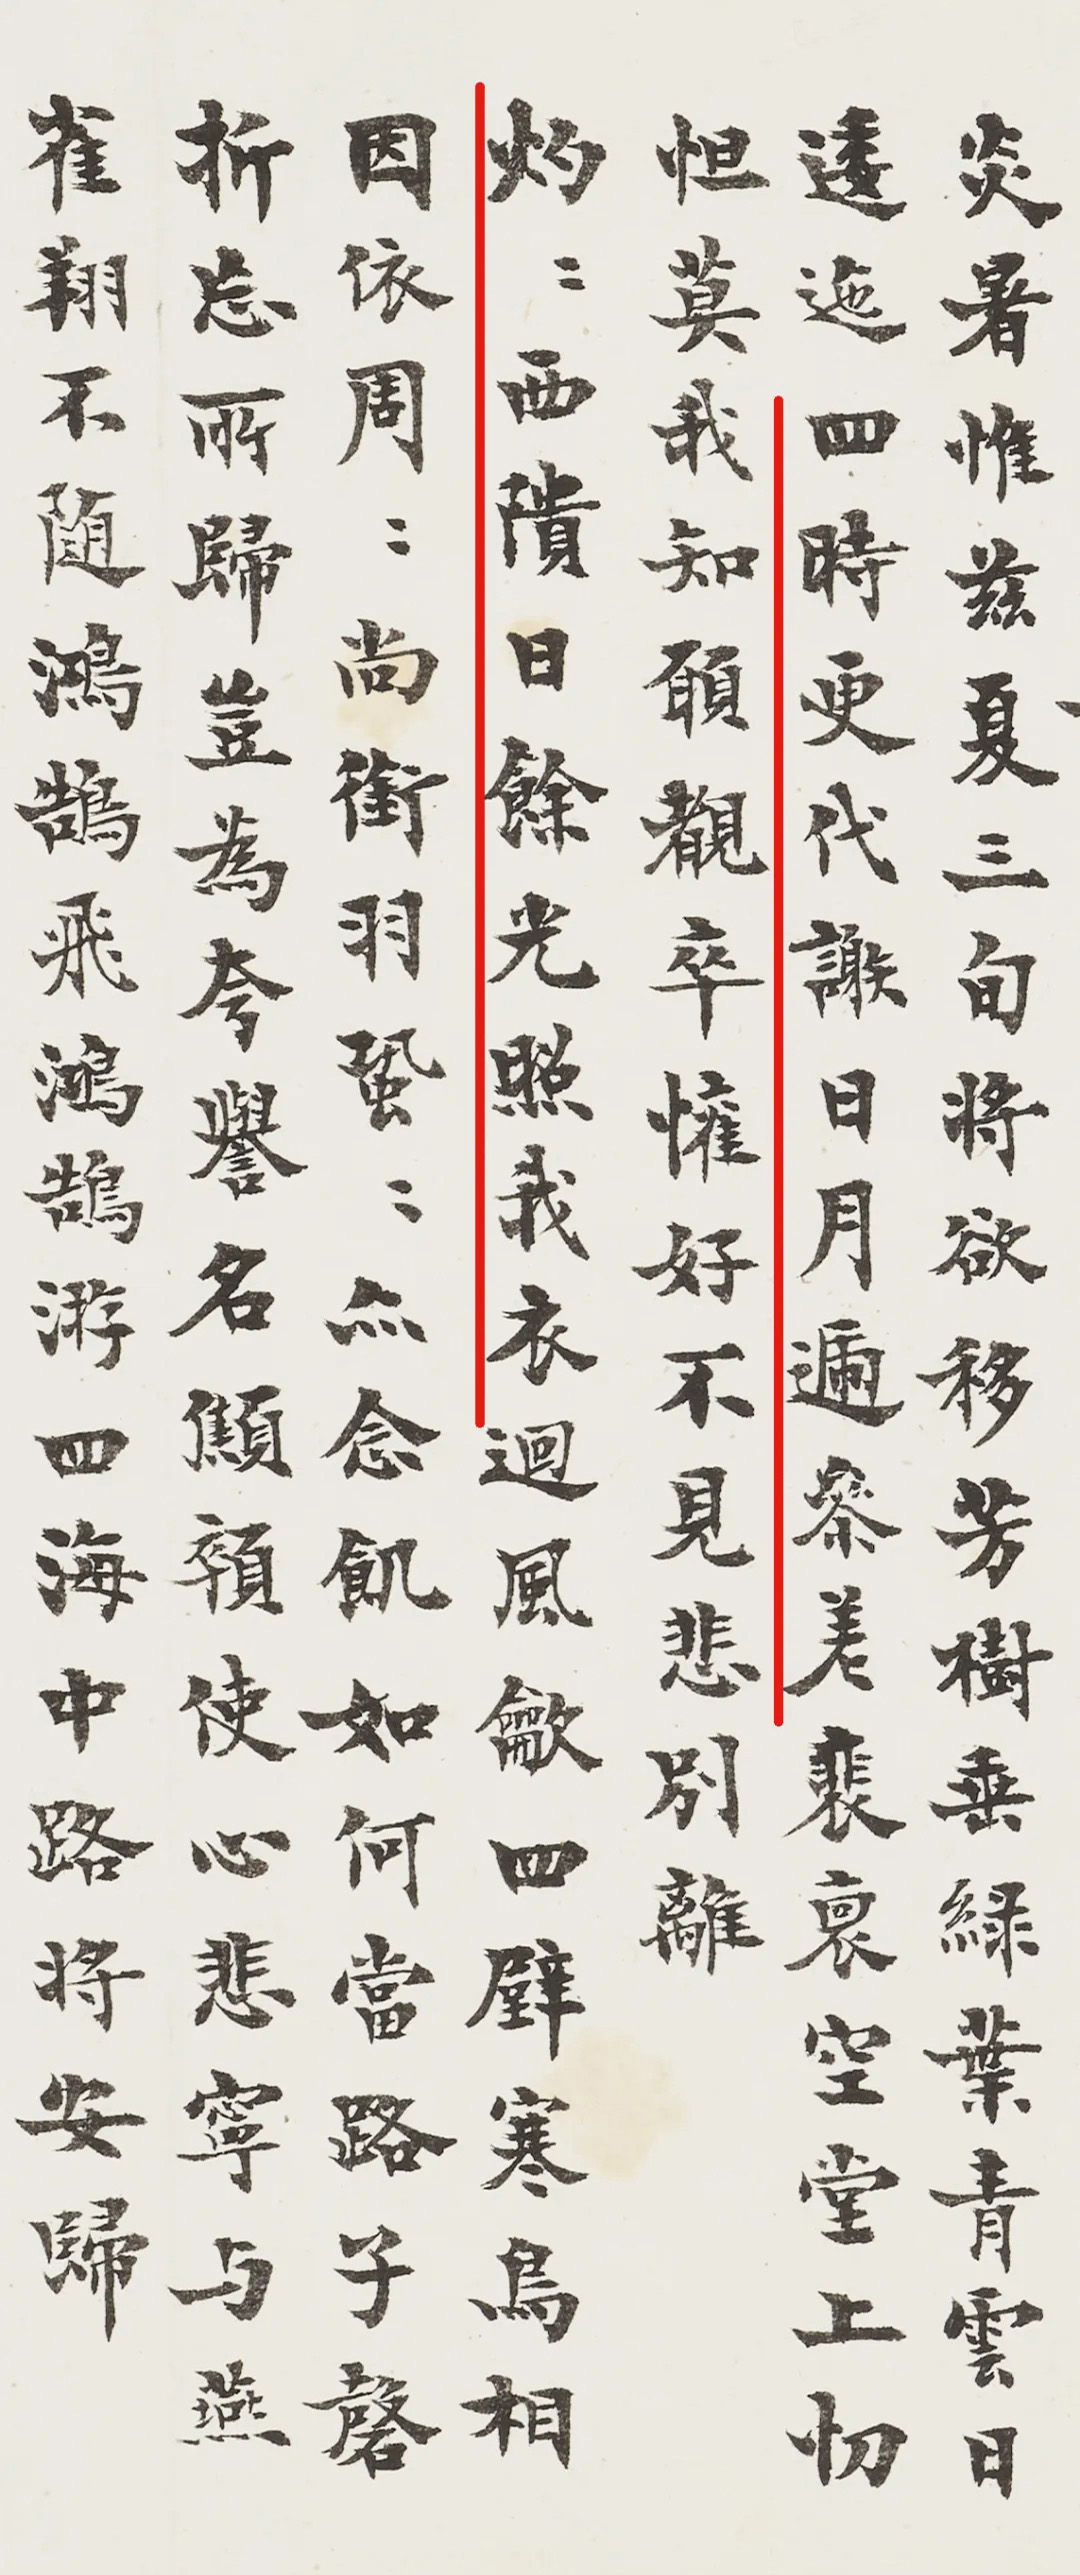 炎暑惟兹夏三旬将欲移芳樹垂緑葉青雲日
逶迤四時更代謝日月遞參差裴空堂上忉
怛莫我知願覩卒懽好不見悲別離
灼〻西隤日餘光照我衣迴風龡四壁寒鳥相
因依周〻尚銜羽蛩〻亦念飢如何當路子磬
折忘所歸豈為夸譽名顦顇使心悲寧与燕
雀翔不随鴻鵠飛鴻鵠游四海中路将安歸